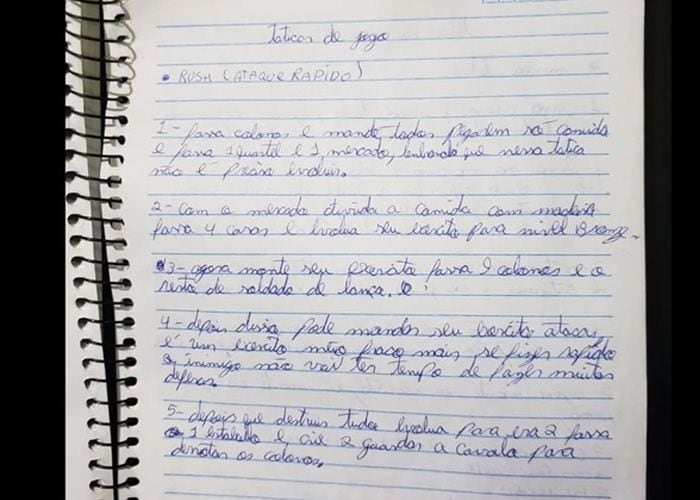 Taticas de jogo
• RUSH (ATAQUE RAPIDO)
1- fassa colonos e mande todos pegarem só comida
e fassa 1 quartel e 1 mercado, lembrando que nessa tatica
não é preciso evoluir.
2- com o mercado divida a comida com madeira
fassa 4 casas e evolua seu exercito para nivel Bronze.
3- agora monte seu exercito fassa 9 colonos e o
resto de soldado de lança. e
4- depois disso pode mandar seu exercito atacar,
é um exercito meio fraco mais se fizer rapido
o inimigo não vai ter tempo de fazer muitas
defesas.
5- depois que destruir tudo evolua para era 2 fassa
1 estabulo e crie 2 guardas a cavalo para
derrotar os colonos.